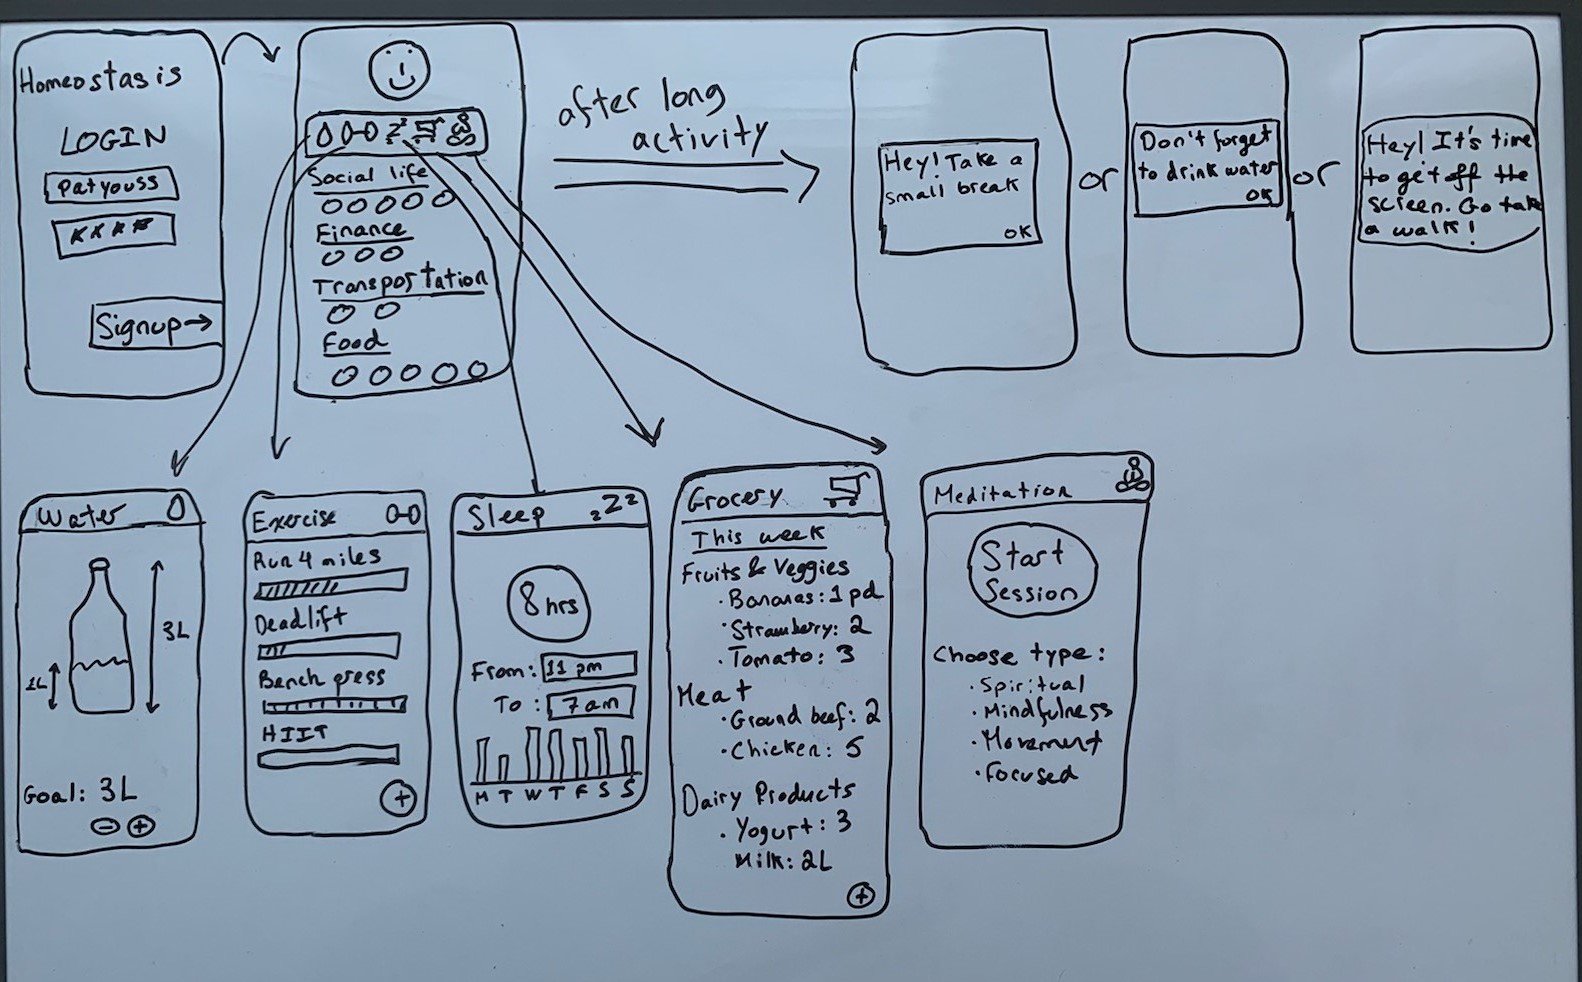 Homeostasis
LOGIN
patyouss
****
Signup→
zzz
Social life
Finance
Transportation
Food
after long
activity
Hey! Take a
small break
OK
or
Don't forget
to drink water
OK
or
Hey! It's time
to get off the
screen. Go take
a walk!
Water
3L
1L
Goal: 3L
- +
Exercise
Run 4 miles
Deadlift
Bench press
HIIT
+
Sleep zZZ
8 hrs
From: 11 pm
To : 7 am
M T W T F S S
Grocery
This week
Fruits & Veggies
· Bananas: 1 pd
· Strawberry: 2
· Tomato: 3
Meat
· Ground beef: 2
· Chicken: 5
Dairy Products
· Yogurt: 3
Milk: 2L
+
Meditation
Start
Session
Choose type:
· Spiritual
· Mindfulness
· Movement
· Focused